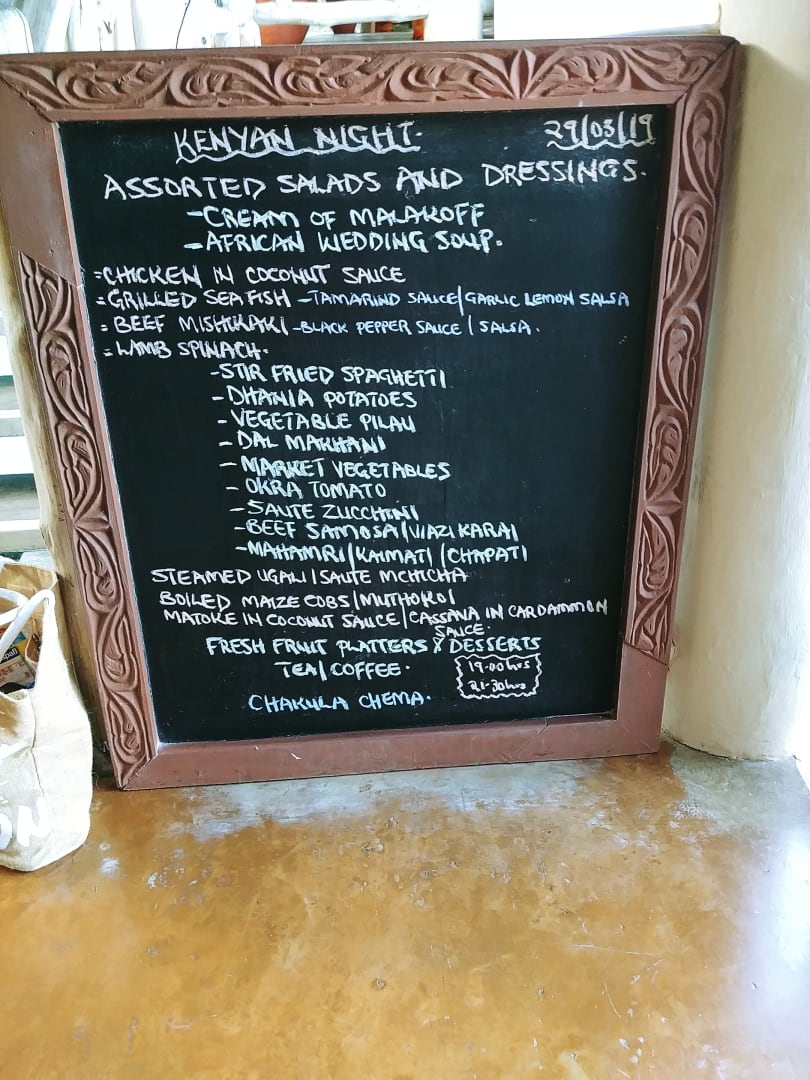 KENYAN NIGHT. 29/03/19
ASSORTED SALADS AND DRESSINGS.
-CREAM OF MALAKOFF
-AFRICAN WEDDING SOUP.
=CHICKEN IN COCONUT SAUCE
=GRILLED SEA FISH -TAMARIND SAUCE/GARLIC LEMON SALSA
=BEEF MISHIKAKI -BLACK PEPPER SAUCE / SALSA.
=LAMB SPINACH.
-STIR FRIED SPAGHETTI
-DHANIA POTATOES
-VEGETABLE PILAU
-DAL MAKHANI
-MARKET VEGETABLES
-OKRA TOMATO
-SAUTE ZUCCHINI
-BEEF SAMOSA/VIAZI KARAI
-MAHAMRI/KAIMATI/CHAPATI
STEAMED UGALI/SAUTE MCHICHA
BOILED MAIZE COBS/MUTHOKOI
MATOKE IN COCONUT SAUCE/CASSANA IN CARDAMMON
SAUCE.
FRESH FRUIT PLATTERS & DESSERTS
TEA/COFFEE.
19.00hrs
21.30hrs
CHAKULA CHEMA.
ON